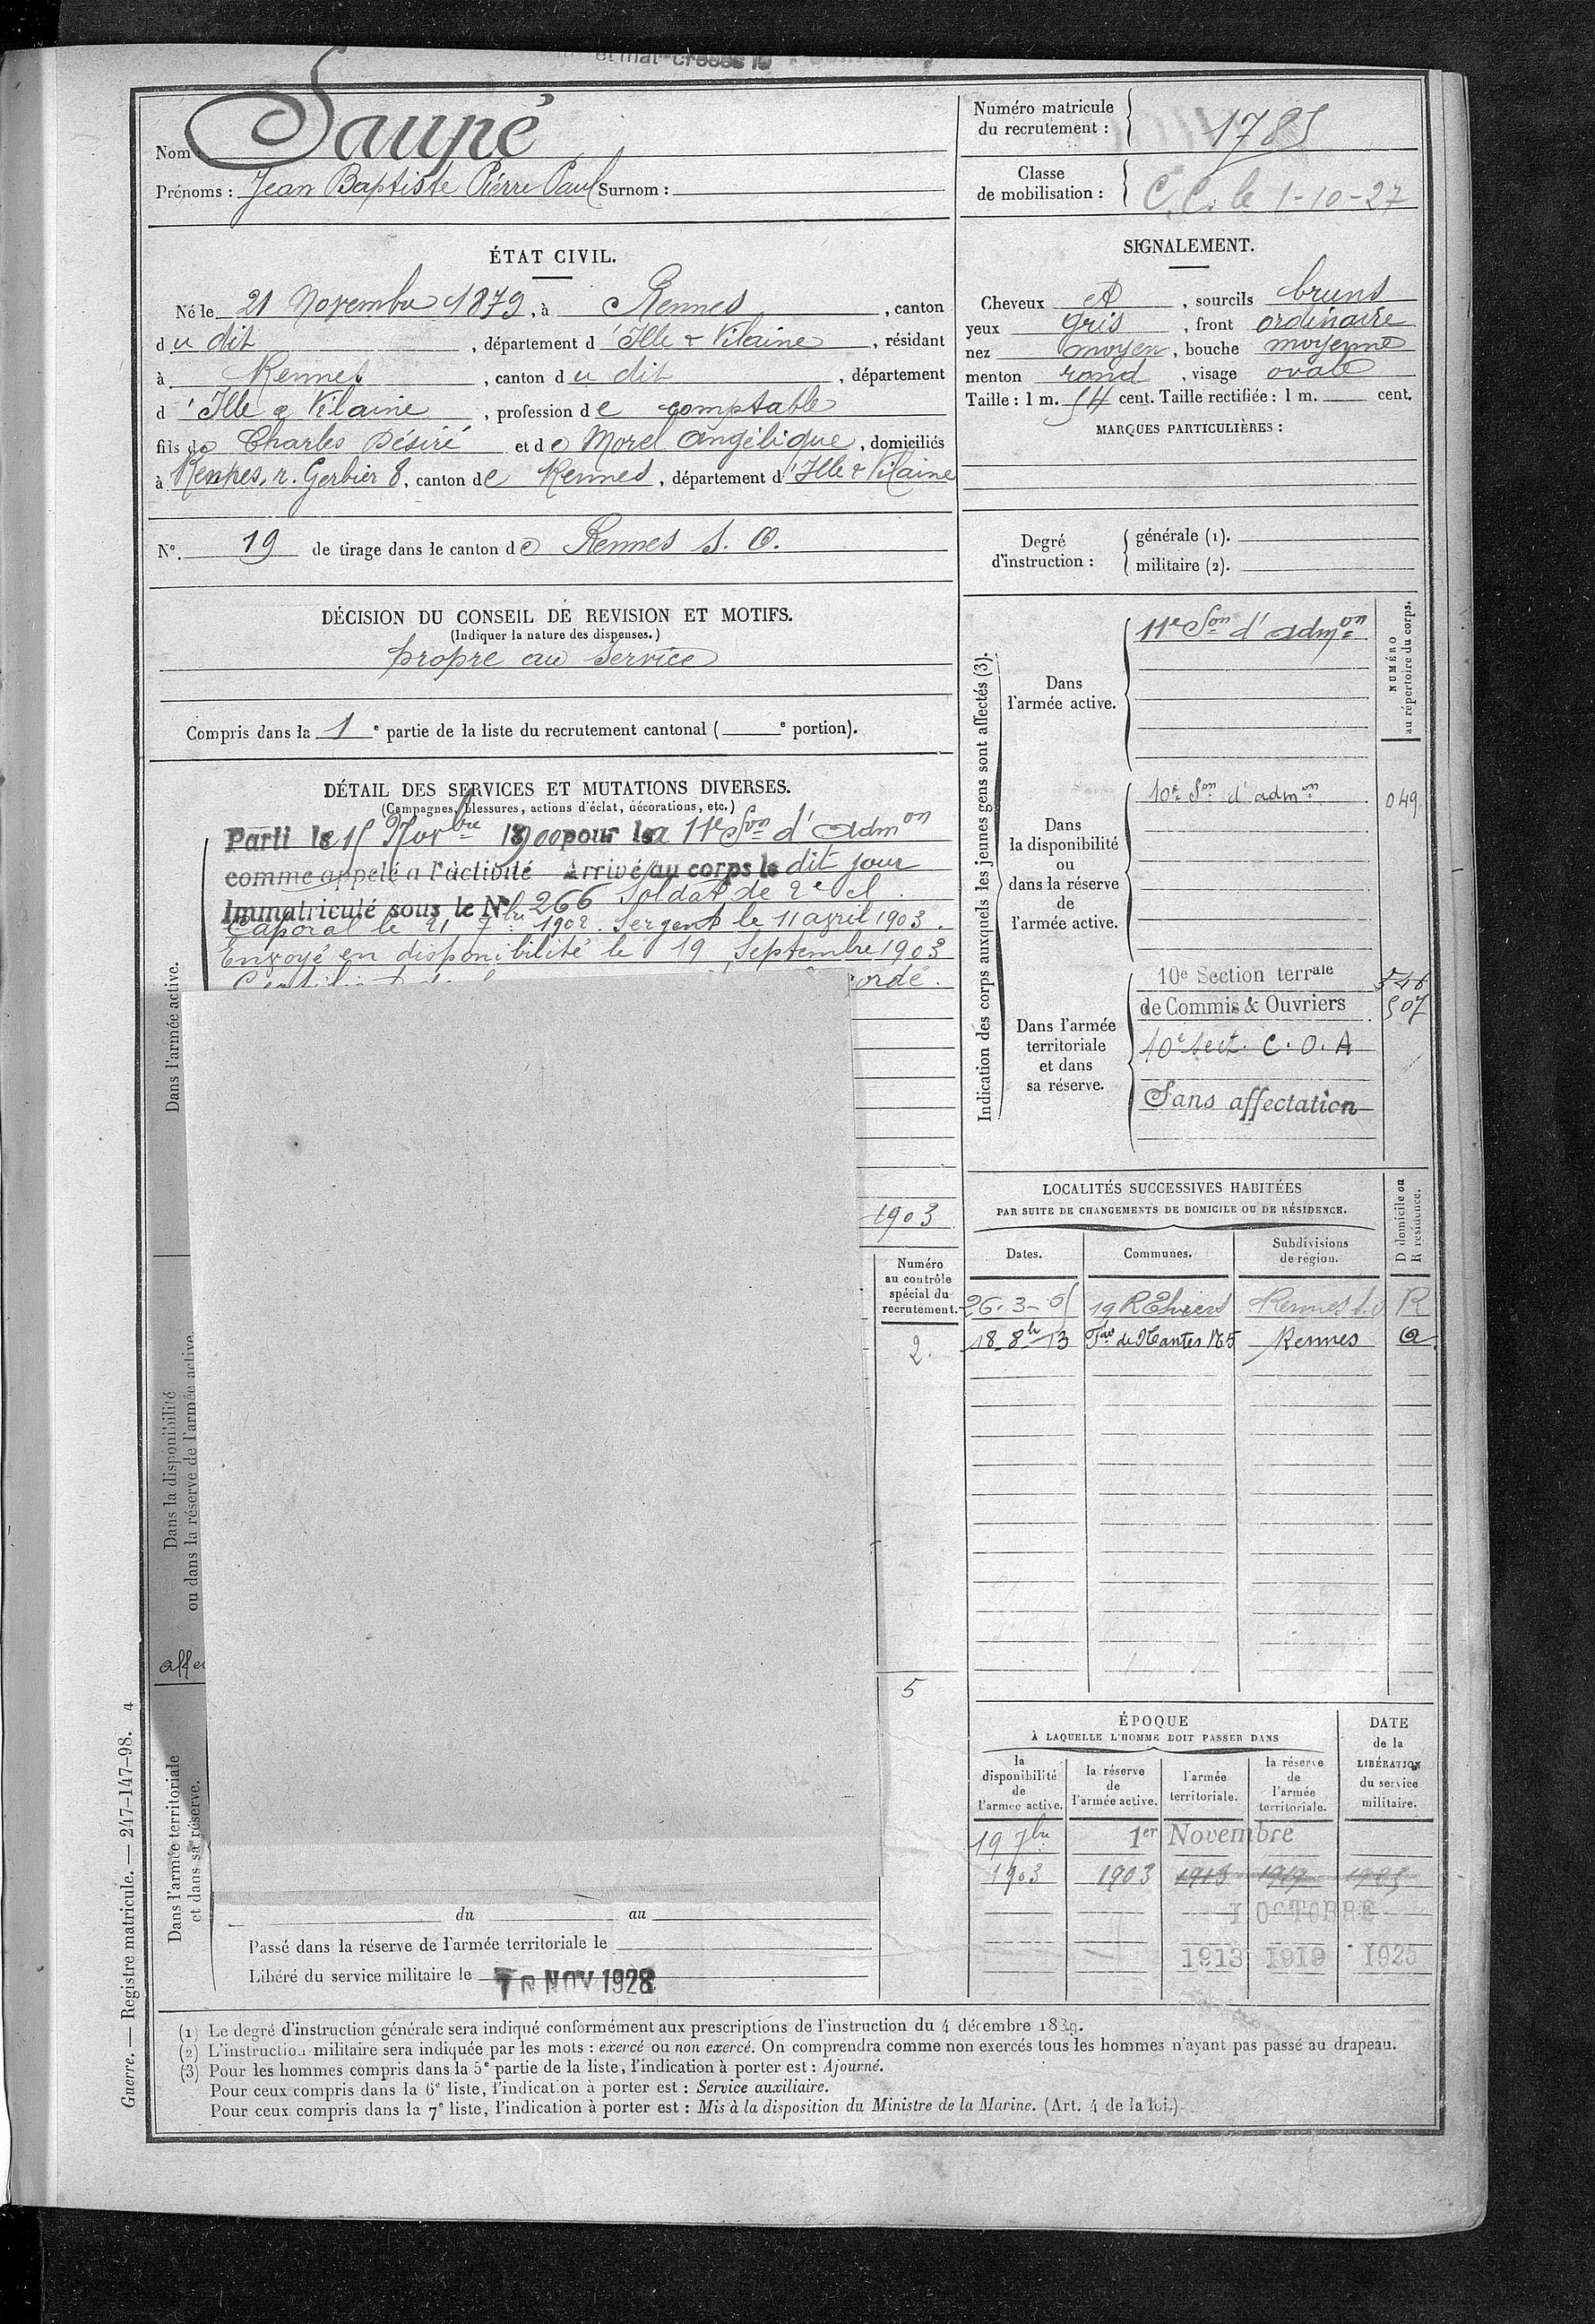 Nom : Saupé
Prénoms : Jean Baptiste Pierre Paul Surnom :
ÉTAT CIVIL.
Né le 21 Novembre 1879, à Rennes, canton
du dit, département d'Ille & Vilaine, résidant
à Rennes, canton du dit, département
d'Ille & Vilaine, profession de comptable
fils de Charles Désiré et de Morel Angélique, domiciliés
à Rennes, r. Gerbier 8, canton de Rennes, département d'Ille & Vilaine
N°. 19 de tirage dans le canton de Rennes S. O.
DÉCISION DU CONSEIL DE REVISION ET MOTIFS.
(Indiquer la nature des dispenses.)
propre au service
Compris dans la 1e partie de la liste du recrutement cantonal ( e portion).
DÉTAIL DES SERVICES ET MUTATIONS DIVERSES.
(Campagnes, blessures, actions d'éclat, décorations, etc.)
Parti le 15 Novbre 1900 pour la 11e Son d'admon
comme appelé à l'activité Arrivé au corps le dit jour
Immatriculé sous le N° 266 Soldat de 2e cl.
Caporal le 21 7bre 1902. Sergent le 11 avril 1903.
Envoyé en disponibilité le 19 Septembre 1903
Dans l'armée active.
1903
Numéro
au contrôle
spécial du
recrutement.
2.
Dans la disponibilité
ou dans la réserve de l'armée active
5
Dans l'armée territoriale
et dans sa réserve.
du au
Passé dans la réserve de l'armée territoriale le
Libéré du service militaire le 10 NOV 1928
Numéro matricule
du recrutement : 1785
Classe
de mobilisation : C.C. le 1-10-27
SIGNALEMENT.
Cheveux et, sourcils bruns
yeux gris, front ordinaire
nez moyen, bouche moyenne
menton rond, visage ovale
Taille : 1 m. 54 cent. Taille rectifiée : 1 m. cent.
MARQUES PARTICULIÈRES :
Degré
d'instruction :
générale (1).
militaire (2).
Indication des corps auxquels les jeunes gens sont affectés (3).
NUMÉRO
au répertoire du corps.
Dans
l'armée active.
11e Son d'admon
Dans
la disponibilité
ou
dans la réserve
de
l'armée active.
10e Son d'admon 049
Dans l'armée
territoriale
et dans
sa réserve.
10e Section terrale 546
de Commis & Ouvriers 507
10e Sect. C. O. A
Sans affectation
LOCALITÉS SUCCESSIVES HABITÉES
PAR SUITE DE CHANGEMENTS DE DOMICILE OU DE RÉSIDENCE.
Dates. Communes. Subdivisions
de région. D domicile ou
R résidence.
26-3-05 19 R Rennes R
18-8bre 13 de Nantes 165 Rennes
ÉPOQUE
À LAQUELLE L'HOMME DOIT PASSER DANS
la
disponibilité
de
l'armée active.
la réserve
de
l'armée active.
l'armée
territoriale.
la réserve
de
l'armée
territoriale.
DATE
de la
LIBÉRATION
du service
militaire.
19 7bre 1er Novembre
1903 1903 1913 1919 1925
1 OCTOBRE
1913 1919 1925
(1) Le degré d'instruction générale sera indiqué conformément aux prescriptions de l'instruction du 4 décembre 1889.
(2) L'instruction militaire sera indiquée par les mots : exercé ou non exercé. On comprendra comme non exercés tous les hommes n'ayant pas passé au drapeau.
(3) Pour les hommes compris dans la 5e partie de la liste, l'indication à porter est : Ajourné.
Pour ceux compris dans la 6e liste, l'indication à porter est : Service auxiliaire.
Pour ceux compris dans la 7e liste, l'indication à porter est : Mis à la disposition du Ministre de la Marine. (Art. 4 de la loi.)
Guerre. — Registre matricule. — 247-147-98. 4